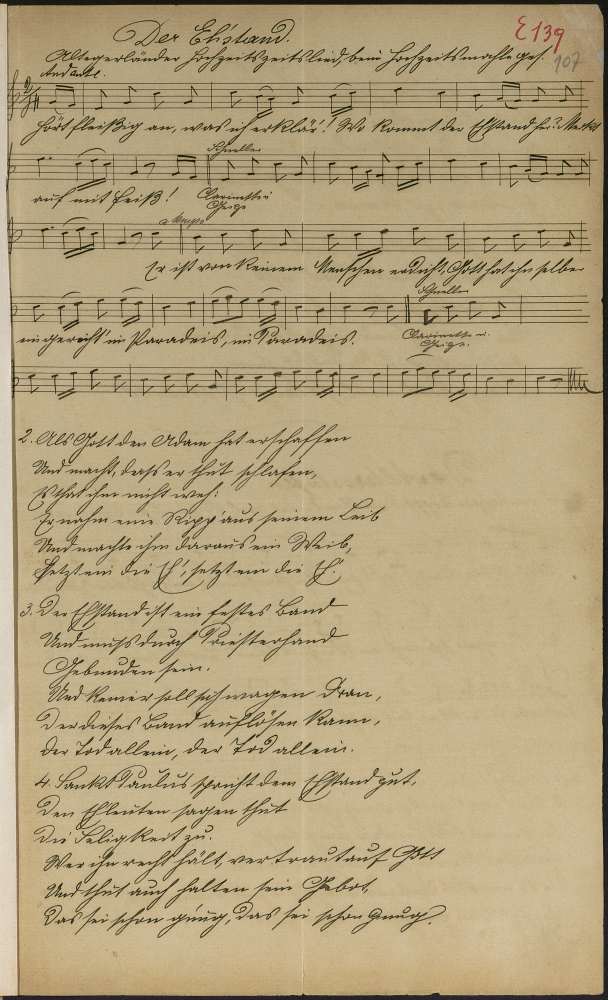 Der Ehstand.
E 139
107
Altegerländer Hochzeitszeitslied, beim Hochzeitsmahle ges.
Andante.
Hört fleißig an, was ich erklär'! Wo kommt der Ehstand her? Merket
Schneller
auf mit Fleiß! Clarinette u.
Geige
a tempo
Er ist von keinem Menschen erdicht, Gott hat ihn selber
Schneller
eingericht im Paradeis, im Paradeis. Clarinette u.
Geige.
2. Als Gott den Adam hat erschaffen
Und macht, dass er thut schlafen,
Es that ihm nicht weh:
Er nahm eine Ripp' aus seinem Leib
Und machte ihm daraus ein Weib,
Setzt ein die Eh', setzt ein die Eh'.
3. Der Ehstand ist ein festes Band
Und muss durch Priesterhand
Gebunden sein.
Und keiner soll sich wagen dran,
Der dieses Band auflösen kann,
Der Tod allein, der Tod allein.
4. Sankt Paulus spricht dem Ehstand gut,
Den Ehleuten sagen thut
Die Seligkeit zu.
Wer ihn recht hält, vertraut auf Gott
Und thut auch halten sein Gebot,
Das sei schon gnug, das sei schon gnug.